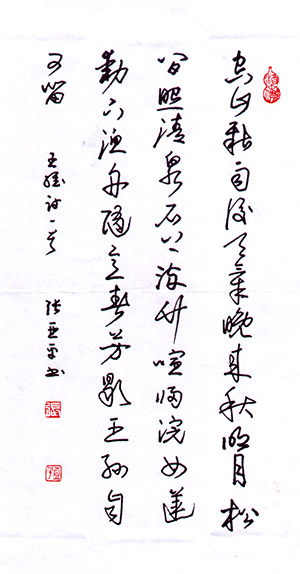 空山新雨後天氣晚来秋明月松
间照清泉石上流竹喧归浣女莲
動下渔舟随意春芳歇王孙自
可留 王维诗一首 张亚平书